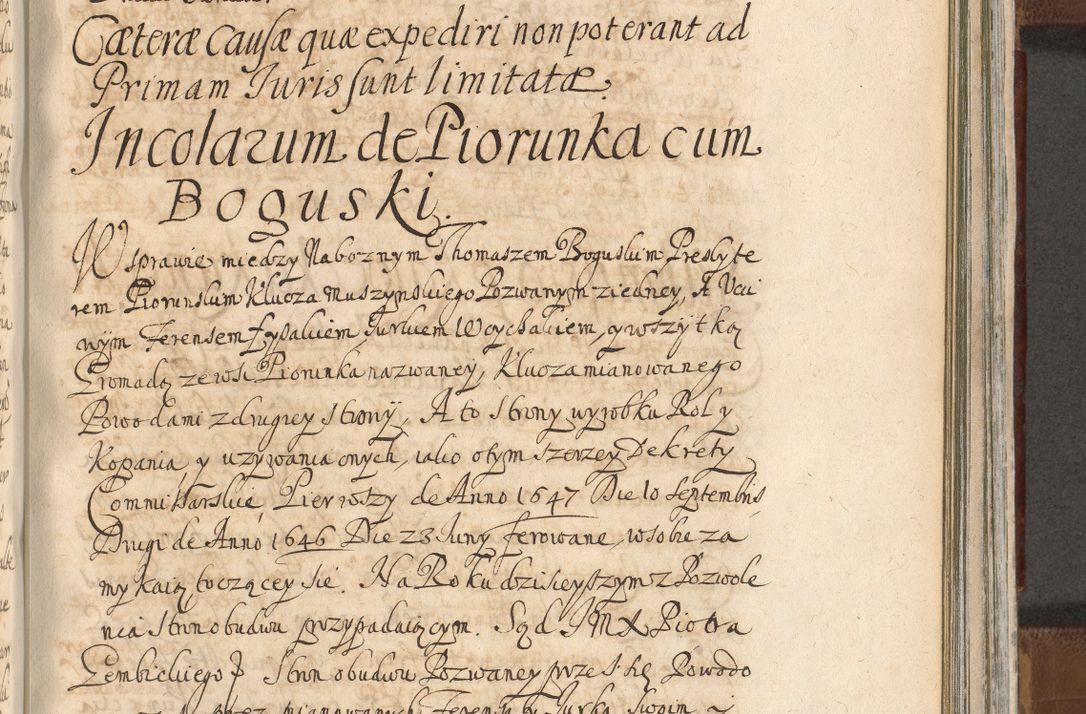 Cæteræ Causæ quæ expediri non poterant ad
Primam Juris sunt limitatæ.
Incolarum de Piorunka cum
Boguski.
W sprawie między Naboznym Thomaszem Boguskim Presbyte
rem Piorunskim Klucza Muszynskiego Pozwanym z iedney, A Ucci
wym Ferensem Fysakiem Jurkiem Woychakiem, y wszytką
Gromadą ze wsi Piorunka nazwaney, Klucza mianowanego
Powodami z drugiey strony, A to strony wyrobku Rol y
Kopania, y uzywania onych, iako o tym szerzey Dekrety
Commissarskie, Pierwszy de Anno 1647 Die 10 Septembris,
Drugi de Anno 1646 Die 23 Juny ferowane, w sobie za
mykaią toczącey sie. Na Roku dzisieyszym z Pozwole
nia stron obudwu przypadaiącym. Sąd JMX Piotra
Gembickiego Stron obudwu Pozwaney przez się Powodo
przez mianowanych Ferensa Jurka swoim y